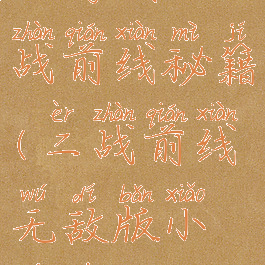 zhàn qián xiàn mì jí
战前线秘籍
èr zhàn qián xiàn
(二战前线
wú dí bǎn xiǎo
无敌版小